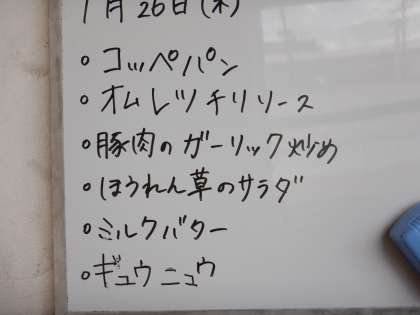 1月26日(木)
◦コッペパン
◦オムレツチリソース
◦豚肉のガーリック炒め
◦ほうれん草のサラダ
◦ミルクバター
◦ギュウニュウ